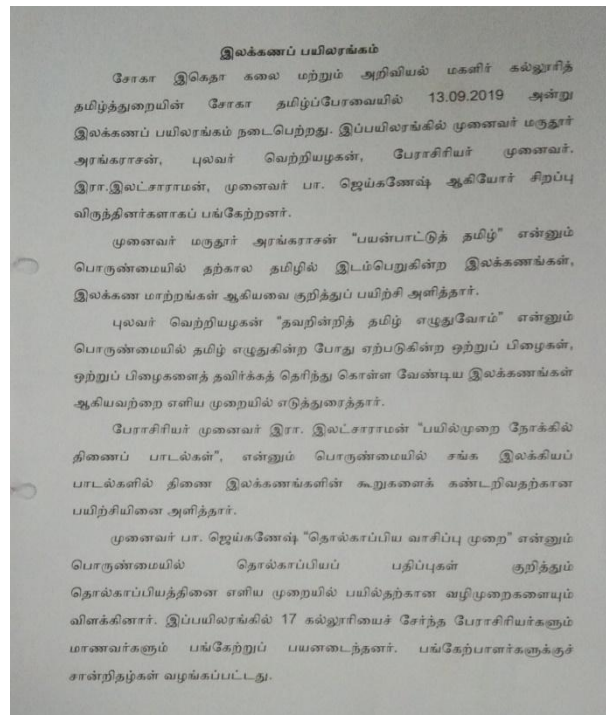 இலக்கணப் பயிலரங்கம்
சோகா இகெதா கலை மற்றும் அறிவியல் மகளிர் கல்லூரித்
தமிழ்த்துறையின் சோகா தமிழ்ப்பேரவையில் 13.09.2019 அன்று
இலக்கணப் பயிலரங்கம் நடைபெற்றது. இப்பயிலரங்கில் முனைவர் மருதூர்
அரங்கராசன், புலவர் வெற்றியழகன், பேராசிரியர் முனைவர்.
இரா.இலட்சாராமன், முனைவர் பா. ஜெய்கணேஷ் ஆகியோர் சிறப்பு
விருந்தினர்களாகப் பங்கேற்றனர்.
முனைவர் மருதூர் அரங்கராசன் "பயன்பாட்டுத் தமிழ்" என்னும்
பொருண்மையில் தற்கால தமிழில் இடம்பெறுகின்ற இலக்கணங்கள்,
இலக்கண மாற்றங்கள் ஆகியவை குறித்துப் பயிற்சி அளித்தார்.
புலவர் வெற்றியழகன் "தவறின்றித் தமிழ் எழுதுவோம்" என்னும்
பொருண்மையில் தமிழ் எழுதுகின்ற போது ஏற்படுகின்ற ஒற்றுப் பிழைகள்,
ஒற்றுப் பிழைகளைத் தவிர்க்கத் தெரிந்து கொள்ள வேண்டிய இலக்கணங்கள்
ஆகியவற்றை எளிய முறையில் எடுத்துரைத்தார்.
பேராசிரியர் முனைவர் இரா. இலட்சாராமன் "பயில்முறை நோக்கில்
திணைப் பாடல்கள்", என்னும் பொருண்மையில் சங்க இலக்கியப்
பாடல்களில் திணை இலக்கணங்களின் கூறுகளைக் கண்டறிவதற்கான
பயிற்சியினை அளித்தார்.
முனைவர் பா. ஜெய்கணேஷ் "தொல்காப்பிய வாசிப்பு முறை" என்னும்
பொருண்மையில் தொல்காப்பியப் பதிப்புகள் குறித்தும்
தொல்காப்பியத்தினை எளிய முறையில் பயில்தற்கான வழிமுறைகளையும்
விளக்கினார். இப்பயிலரங்கில் 17 கல்லூரியைச் சேர்ந்த பேராசிரியர்களும்
மாணவர்களும் பங்கேற்றுப் பயனடைந்தனர். பங்கேற்பாளர்களுக்குச்
சான்றிதழ்கள் வழங்கப்பட்டது.